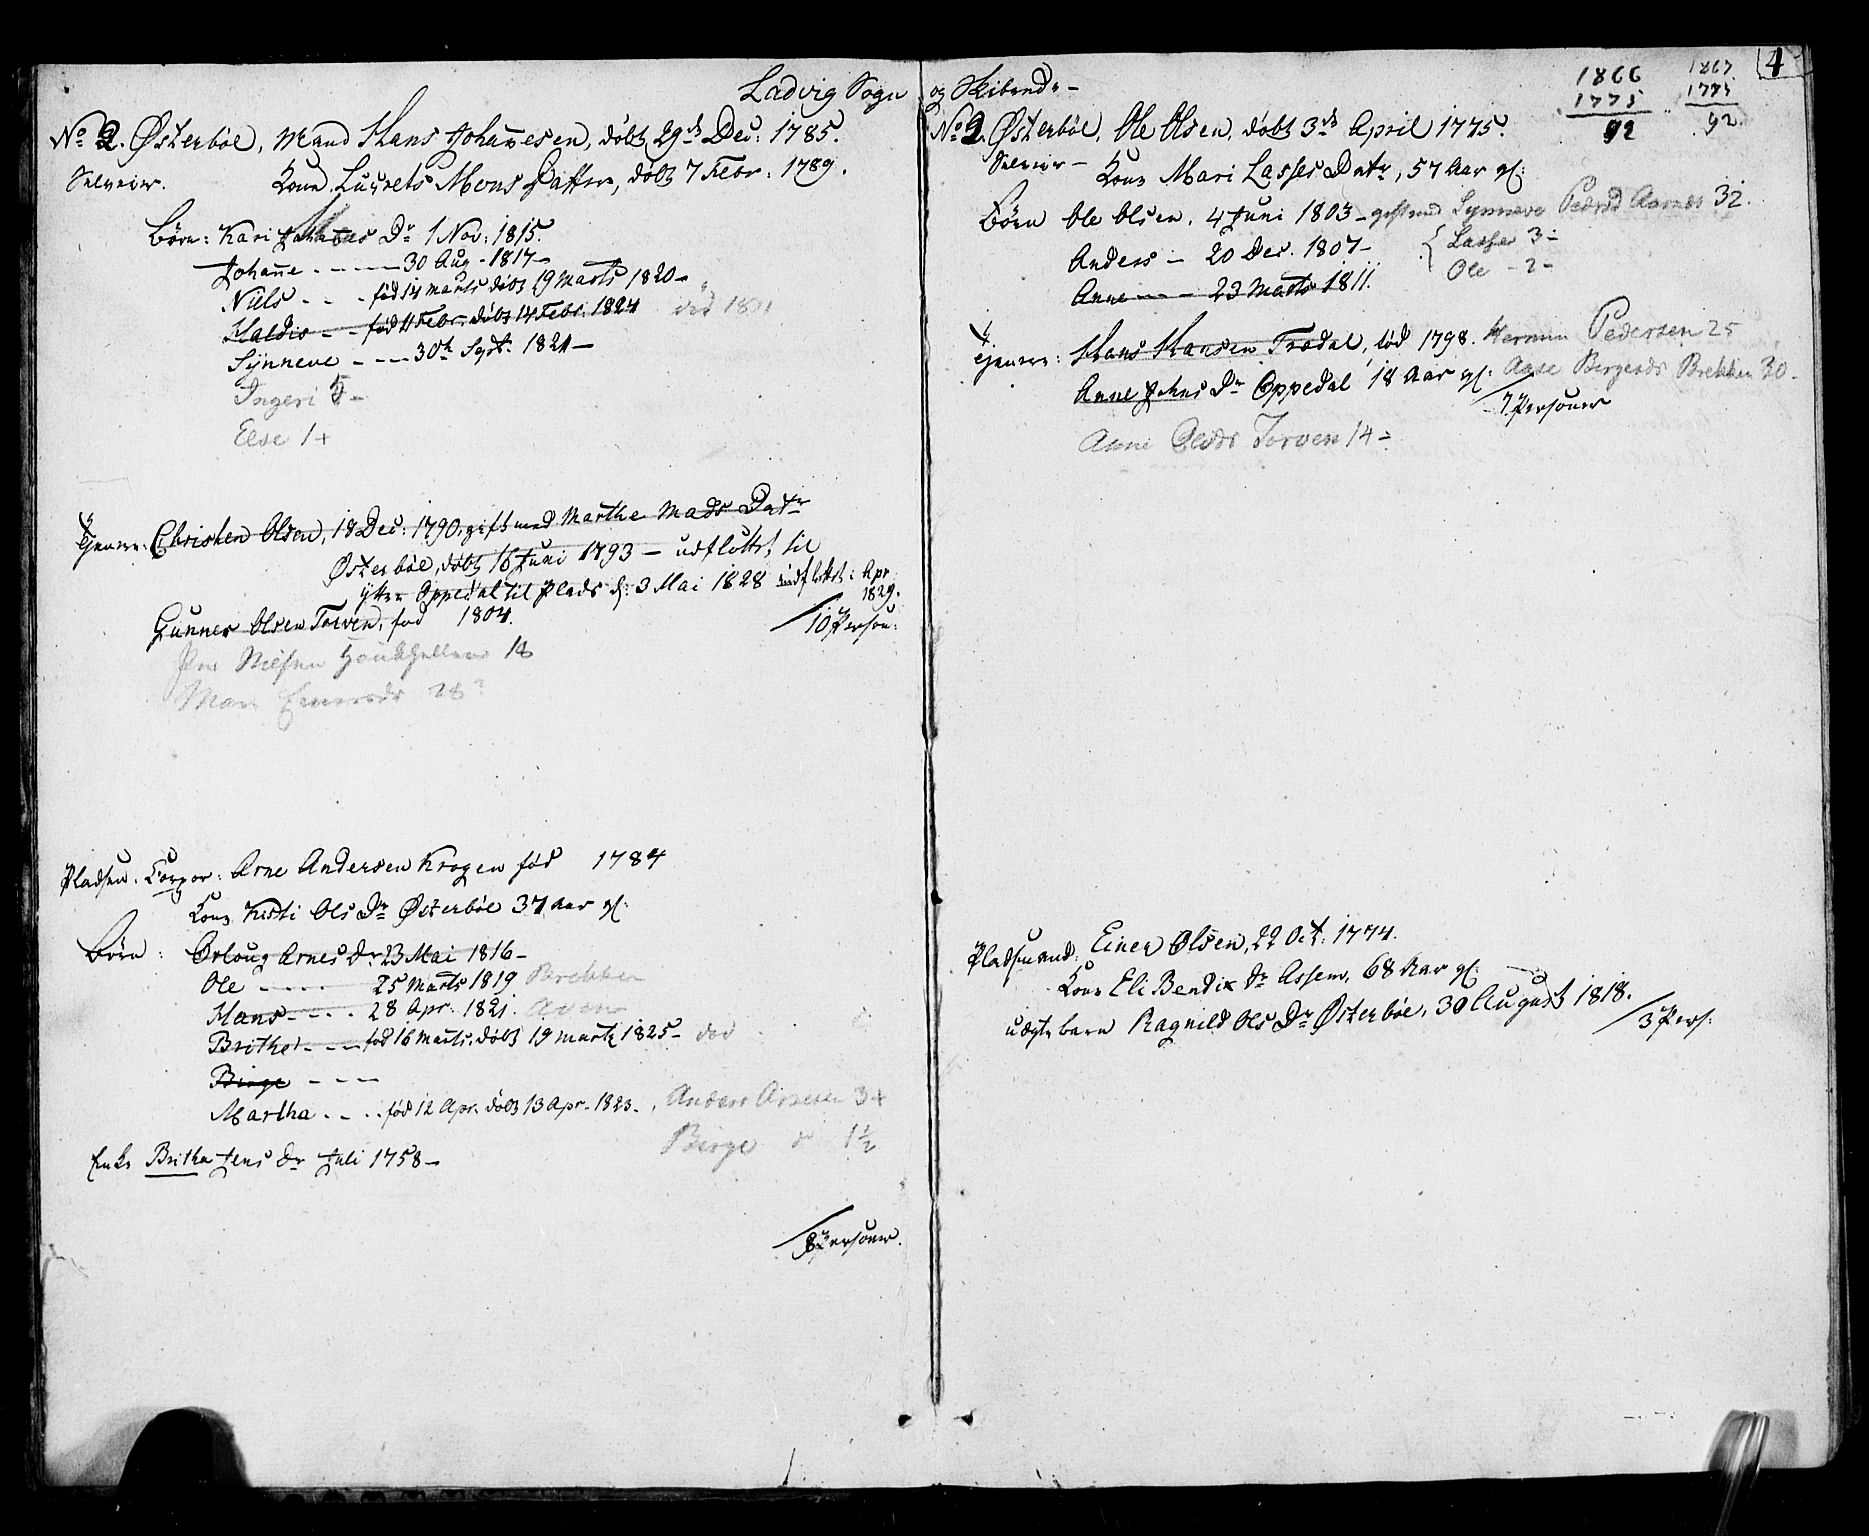 Ladvig Sogn og Skibrede
4
1866
1775
92
1867
1775
92
No 2. Østerbøe, Mand Hans Johan̄esen, døbt 29de Dec: 1785.
Selveier. Kone Lucrets Mons Datter, døbt 7 Febr: 1789.
Børn: Kari Hans Dr 1 Nov: 1815.
Johan̄e - - - 30 Aug - 1817 -
Niels - - - fød 14 Marts døbt 19 Marts 1820 -
Haldis - - fød 11 Febr. døbt 14 Febr. 1824 død
Synneve - - - 30te Sept. 1821 -
Ingeri 5 -
Else 1 +
Tjenere: Christen Olsen, 18 Dec: 1790, gift med Marthe Mads Datr
Østerbøe, døbt 16 Juni 1793 - udfløttet til
ytre Oppedal til Plads d: 3 Mai 1828 indfløttet i Apr
1829.
Gunner Olsen Torven, fød 1804.
10 Person:
Per Nielsen 18
Mari 28
Pladsen: Corpor: Arne Andersen Krogen fød 1784
Kone Kirsti Ols Dr Østerbøe 37 Aar gl:
Børn: Ørloug Arnes Dr 23 Mai 1816 -
Ole - - - - 25 Marts 1819 Brekken
Hans - - - - 28 Apr. 1821.
Brithe - - - fød 16 Marts. døbt 19 Marts 1825 - død
Birge - - -
Martha - - - fød 12 Apr. døbt 13 Apr. 1823. Anders Arnesen 3 +
Birge do 1½
Enke Britha Jens Dr Juli 1758 -
8 Personer.
No 2. Østerbøe, Ole Olsen, døbt 3de April 1775.
Selveier - Kone Mari Lasses Datr, 57 Aar gl:
Børn Ole Olsen. 4 Juni 1803 - gift med Synneve Pedersd 32.
Lasse 3 -
Anders - 20 Dec. 1807 -
Ole - 2 -
Anne - - - 23 Marts 1811.
Tjenere: Hans Hansen Trædal, fød 1798. Herman Pedersen 25
Anne Johns Dr Oppedal 18 Aar gl: Aase Birgesdr Brekken 30 -
7 Personer
Anne Pedsdr Torven 14 -
Pladsmand: Einer Olsen, 22 Oct: 1774.
Kone Eli Bendix Dr Assem, 68 Aar gl:
uægte barn Ragnild Ols Dr Østerbøe, 30 August 1818.
3 Pers: